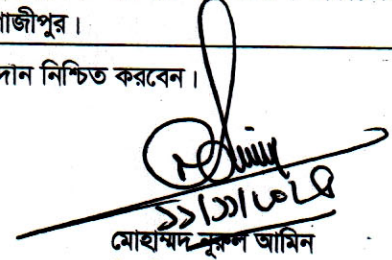 াজীপুর।
দান নিশ্চিত করবেন।
মোহাম্মদ নূরুল আমিন